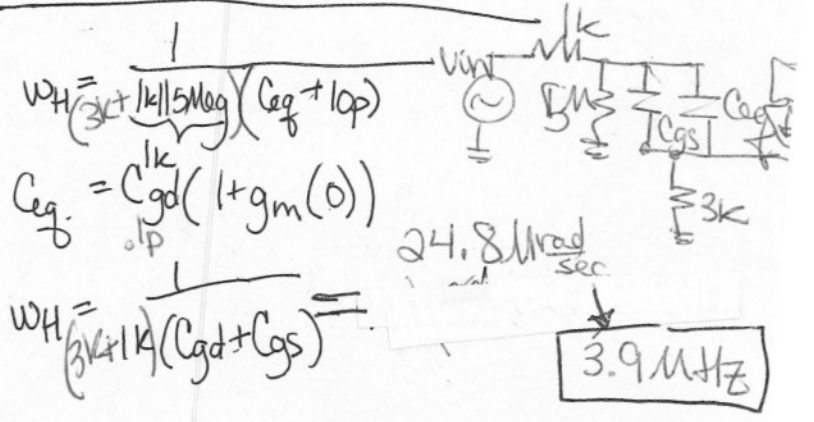 ωH = 1 / (3k + 1k||5Meg)(Ceq + 10p)
1k
Ceq. = Cgd(1 + gm(0))
.1p
ωH = 1 / (3k+1k)(Cgd+Cgs) =
24.8 Mrad/sec
3.9 MHz
Vin
1k
5M
Cgs
Ceq
3k